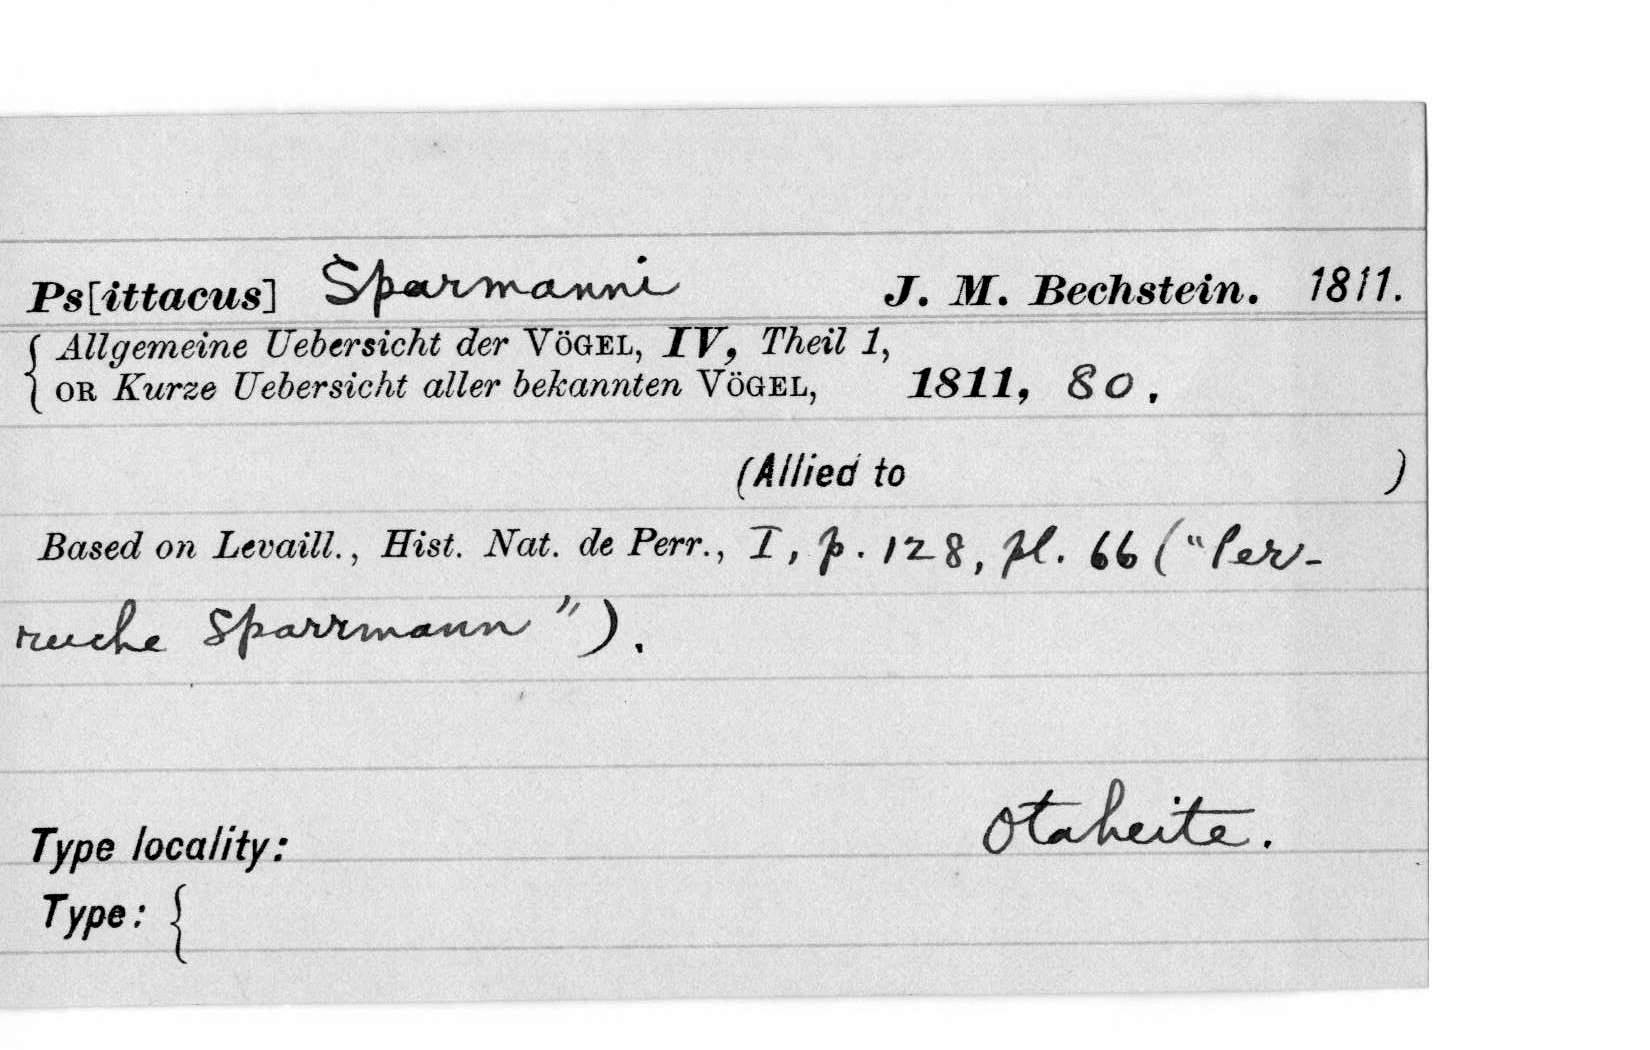 Ps[ittacus] Sparmanni J. M. Bechstein. 1811.
{ Allgemeine Uebersicht der VÖGEL, IV, Theil 1,
OR Kurze Uebersicht aller bekannten VÖGEL, 1811, 80.
(Allied to )
Based on Levaill., Hist. Nat. de Perr., I, p. 128, pl. 66 ("Per-
ruche Sparrmann").
Type locality: Otaheite.
Type: {